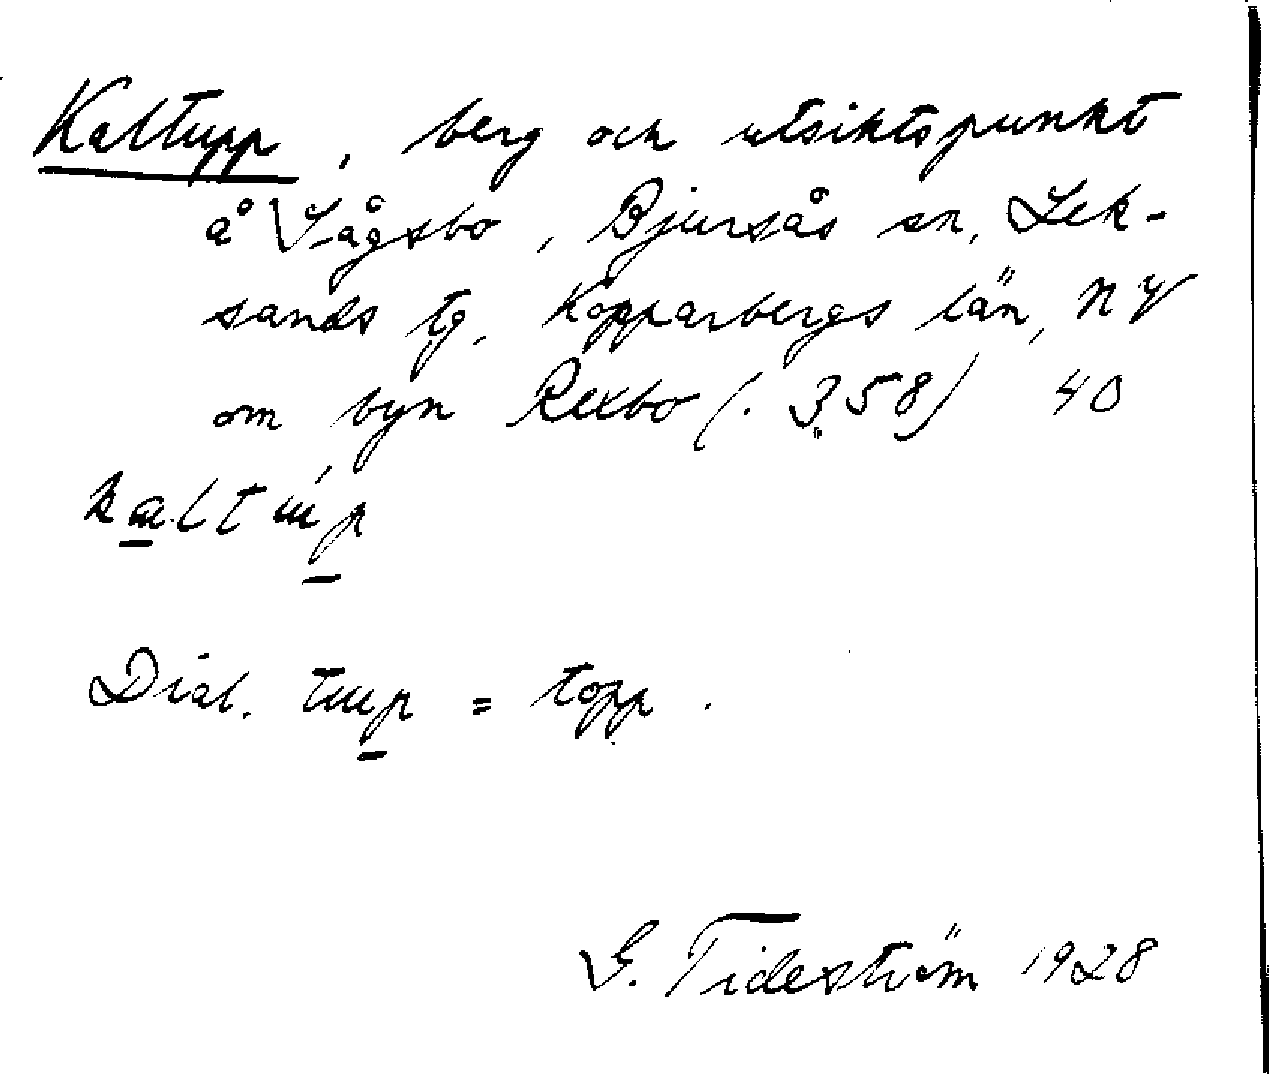 Kaltupp, berg och utsiktspunkt
å Sågsbo, Bjursås sn, Lek-
sands tg, Kopparbergs län, NV
om byn Rexbo (. 358) 40
kaltup
Dial. tup = topp.
G. Tideström 1928